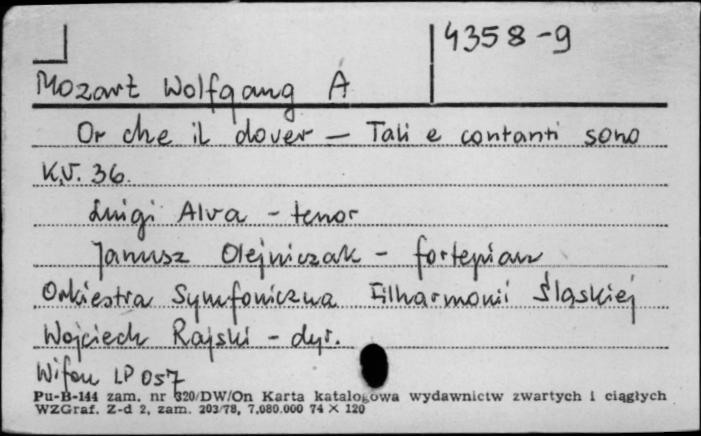 4358-9
Mozart Wolfgang A
Or che il dover — Tali e contanti sono
K.V. 36.
Luigi Alva - tenor
Janusz Olejniczak - fortepian
Orkiestra Symfoniczna Filharmonii Śląskiej
Wojciech Rajski - dyr.
Wifon LP 057
Pu-B-144 zam. nr 320/DW/On Karta katalogowa wydawnictw zwartych i ciągłych
WZGraf. Z-d 2, zam. 203/78, 7.080.000 74 × 120